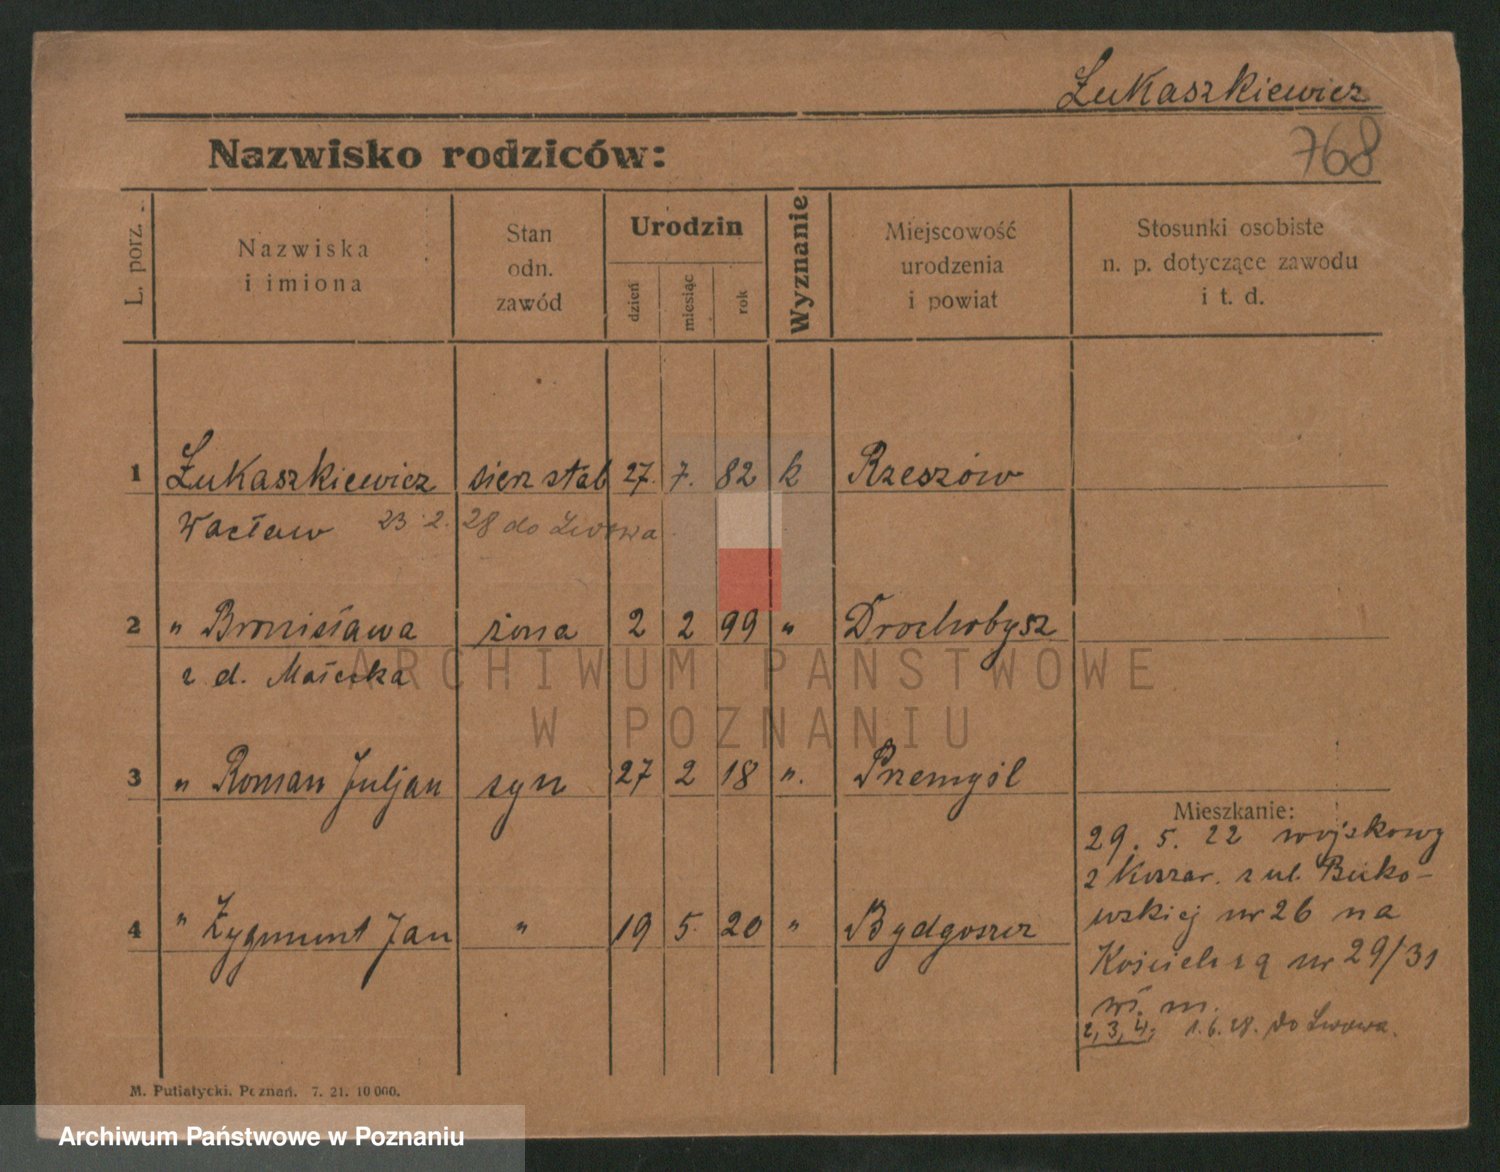 Łukaszkiewicz
768
Nazwisko rodziców:
L. porz.
Nazwiska
i imiona
Stan
odn.
zawód
Urodzin
dzień
miesiąc
rok
Wyznanie
Miejscowość
urodzenia
i powiat
Stosunki osobiste
n. p. dotyczące zawodu
i t. d.
1 Łukaszkiewicz sierż stab 27. 7. 82 k Rzeszów
Wacław 23 2. 28 do Lwowa
2 " Bronisława żona 2 2 99 " Drochobysz
z d. Małecka
3 " Roman Juljan syn 27 2 18 ". Przemyśl
Mieszkanie:
29. 5. 22 wojskowy
z Koszar. z ul. Buko-
wskiej nr 26 na
4 " Zygmunt Jan " 19 5. 20 " Bydgoszcz
Kościelną nr 29/31
wł. m.
2, 3, 4, 1.6.28. do Lwowa.
M. Putiatycki, Poznań. 7. 21. 10 000.
ARCHIWUM PAŃSTWOWE
W POZNANIU
Archiwum Państwowe w Poznaniu